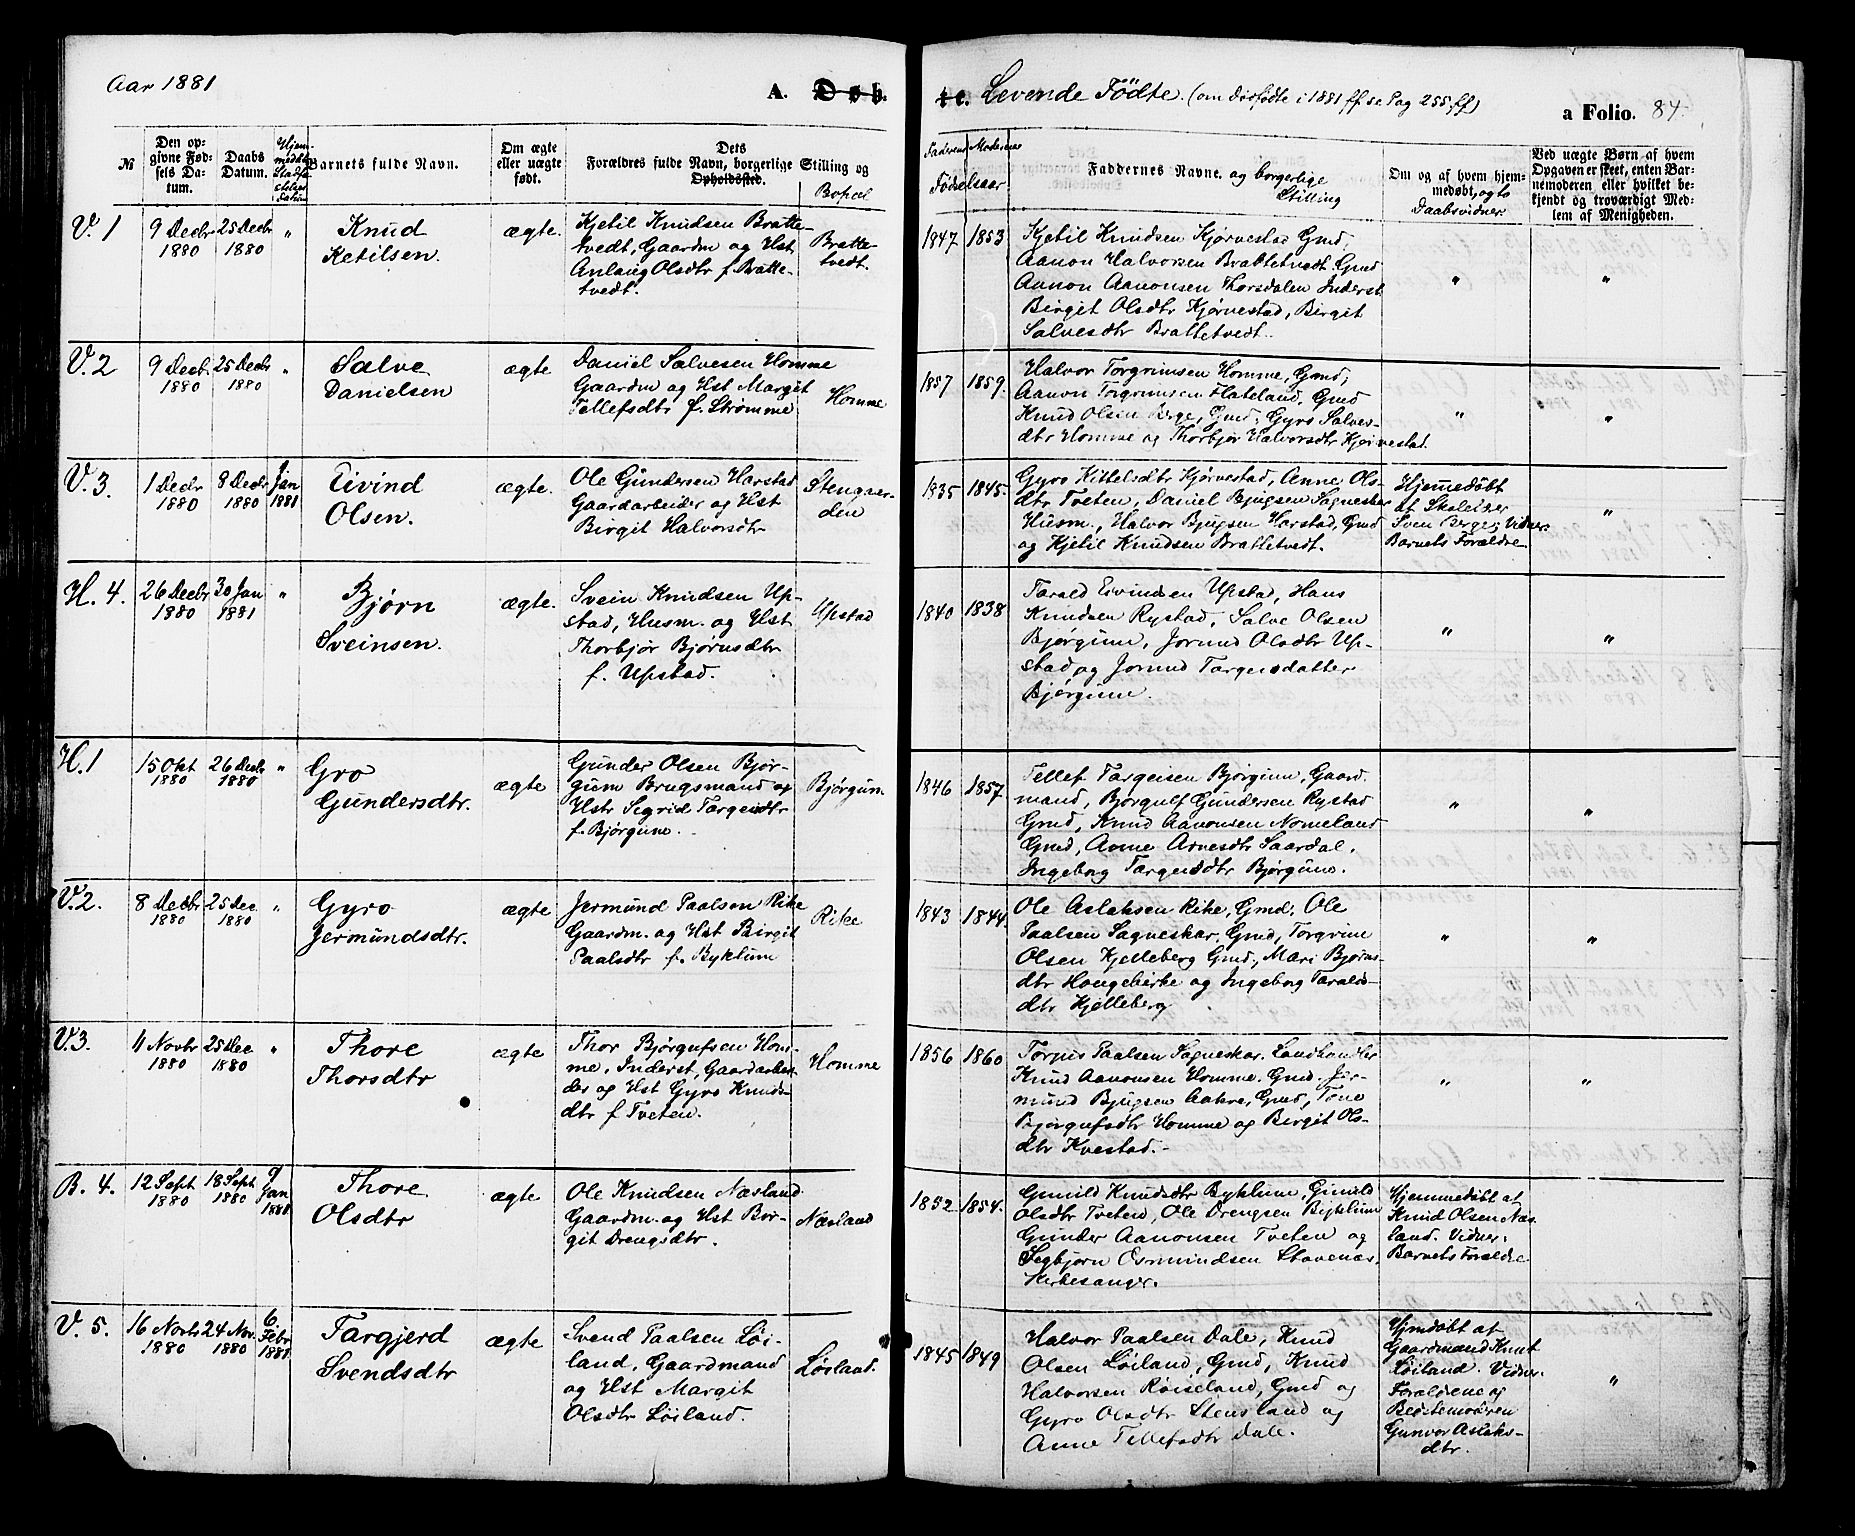 Aar 1881
A. Døb-
te. Levende Fødte. (om dødfødte i 1881 ff se Pag 255 ff)
a Folio. 84.
№
Den op-
givne Fød-
sels Da-
tum.
Daabs
Datum.
Hjem-
Barnets fulde Navn.
Om ægte
eller uægte
født.
Dets
Forældres fulde Navn, borgerlige Stilling og
Opholdssted.
Bopæl
Faderens Moderens
Fødselsaar
Faddernes Navne. og borgerlige
Stilling
Om og af hvem hjem-
medøbt, og to
Daabsvidner
Ved uægte Børn af hvem
Opgaven er skeet, enten Bar-
nemoderen eller hvilket be-
kjendt og troværdigt Med-
lem af Menigheden.
V. 1
9 Decbr
1880
25 Decbr
1880
"
Knud
Ketilsen.
ægte.
Kjetil Knudsen Bratte-
tvedt, Gaardm og Hst
Anlaug Olsdtr f. Bratte-
tvedt.
Bratte-
tvedt.
1847
1853
Kjetil Knudsen Kjørvestad Gmd,
Aanon Halvorsen Brattetvedt. Gmd
Aanon Aanonsen Thorsdalen Inderst
Birgit Olsdtr Kjørvestad, Birgit
Salvesdtr Brattetvedt.
"
"
V. 2
9 Decb.
1880
25 Decbr
1880
"
Salve
Danielsen
ægte
Daniel Salvesen Homme
Gaardm og Hst Margit
Tellefsdtr f. Strømme
Homme
1857
1859.
Halvor Torgrimsen Homme, Gmd,
Aanon Torgrimsen Flateland. Gmd
Knud Olsen Berge, Gmd, Gyro Salves-
dtr Homme og Thorbjør Halvorsdtr Kjørvestad.
"
"
V. 3.
1 Decbr
1880
8 Decbr
1880
Jan
1881
Eivind
Olsen.
ægte.
Ole Gundersen Harstad
Gaardarbeider og Hst
Birgit Halvorsdtr
Stengser-
den
1835
1845.
Gyro Kittelsdtr Kjørvestad, Anne Ols-
dtr Tveten, Daniel Bjugsen Sagneskar
Husm., Halvor Bjugsen Harstad, Gmd
og Kjetil Knudsen Brattetvedt.
Hjemmedøbt
af Skolelærer
Sven Berge, Vidner
Barnets Forældre.
"
H. 4.
26 Decbr
1880
30 Jan
1881
"
Bjørn
Sveinsen.
ægte.
Svein Knudsen Up-
stad, Husm. og Hst
Thorbjør Bjørnsdtr
f. Upstad.
Upstad
1840
1838
Tarald Eivindsen Upstad, Hans
Knudsen Rystad, Salve Olsen
Bjørgum, Jorund Olsdtr Up-
stad og Jorund Targeisdatter
Bjørgum.
"
"
H. 1
15 Okt
1880
26 Decbr
1880
"
Gro
Gundersdtr.
ægte
Gunder Olsen Bjør-
gum Brugsmand og
Hstr Sigrid Targeisdtr
f. Bjørgum.
Bjørgum.
1846
1857
Tellef Targeisen Bjørgum, Gaard-
mand, Bjørgulf Gundersen Rystad
Gmd, Knud Aanonsen Nomeland
Gmd, Anne Arnesdtr Saardal.
Ingeborg Targeisdtr Bjørgum.
"
"
V. 2.
8 Decbr
1880
25 Dec
1880
"
Gyro
Jermundsdtr.
ægte
Jermund Paalsen Rike
Gaardm. og Hst Birgit
Paalsdtr f. Byklum
Rike
1843
1844.
Ole Aslaksen Rike, Gmd, Ole
Paalsen Sagneskar. Gmd, Torgrim
Olsen Kjelleberg Gmd, Mari Bjørns-
dtr Hougebirke og Ingeborg Taralds-
dtr Kjelleberg
"
"
V. 3.
11 Novbr
1880
25 Dec
1880
"
Thore
Thorsdtr
ægte
Thor Bjørgufsen Hom-
me, Inderst, Gaardarbei-
der og Hst Gyro Knuds-
dtr f Tveten.
Homme
1856
1860
Torjus Paalsen Sagneskar. Landhandler
Knud Aanonsen Homme. Gmd. Jer-
mund Bjugsen Aakre, Gmd, Tone
Bjørgufsdtr Homme og Birgit Ols-
dtr Kvestad.
"
"
B. 4.
12 Sept
1880
18 Sept
1880
9
Jan
1881
Thore
Olsdtr
ægte
Ole Knudsen Næsland
Gaardm. og Hst Bir-
git Drengsdtr.
Næsland
1852
1854.
Gunild Knudsdtr Byklum, Gunild
Olsdtr Tveten, Ole Drengsen Byklum
Gunder Aanonsen Tveten og
Sigbjørn Osmundsen Stavenæs,
Kirkesanger.
Hjemmedøbt af
Knud Olsen Næs-
land. Vidner.
Barnets Forældre
V. 5.
16 Novbr
1880
24 Nov.
1880
6
Febr
1881
Targjerd
Svendsdtr
ægte
Svend Paalsen Løi-
land, Gaardmand
og Hst Margit
Olsdtr Løiland.
Løiland.
1845
1849
Halvor Paalsen Dale, Knud
Olsen Løiland, Gmd, Knud
Halvorsen Røiseland, Gmd og
Gyro Olsdtr Stensland og
Anne Tellefsdtr Dale.
Hjmdøbt af
Gaardmand Knut
Løiland. Vidner.
Forældrene og
Bedstemoderen
Gunvor Aslaks-
dtr.
"